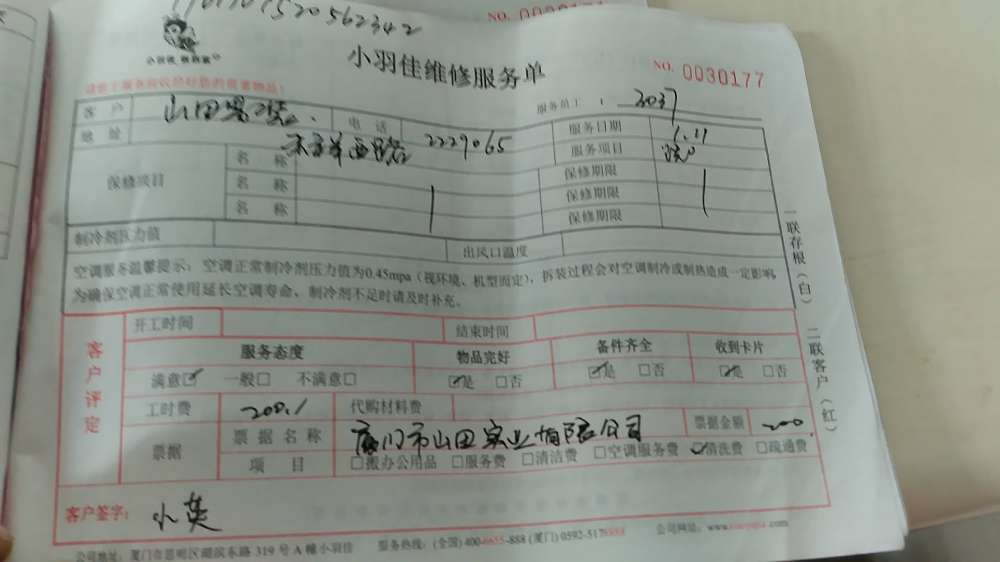 520562342
NO.
小羽佳 包您家
小羽佳维修服务单
NO. 0030177
服务员工: 3037
客户 山田 电话 2229065 服务日期 1.11
地址 西路 服务项目
保修项目 名称 保修期限
名称 保修期限
名称 保修期限
制冷剂压力值 出风口温度
空调服务温馨提示:空调正常制冷剂压力值为0.45mpa(视环境、机型而定),拆装过程会对空调制冷或制热造成一定影响,
为确保空调正常使用延长空调寿命,制冷剂不足时请及时补充。
一联存根(白) 二联客户(红)
客户评定
开工时间 结束时间
服务态度 物品完好 备件齐全 收到卡片
满意☑ 一般□ 不满意□ ☑是 □否 ☑是 □否 ☑是 □否
工时费 200 代购材料费
票据 票据名称 厦门市山田实业有限公司 票据金额 200
项目 □搬办公用品 □服务费 □清洁费 □空调服务费 ☑清洗费 □疏通费
客户签字: 小英
公司地址:厦门市思明区湖滨东路 319 号 A 幢小羽佳 服务热线:(全国)400-6655-888 (厦门) 0592-517 公司网址:www.